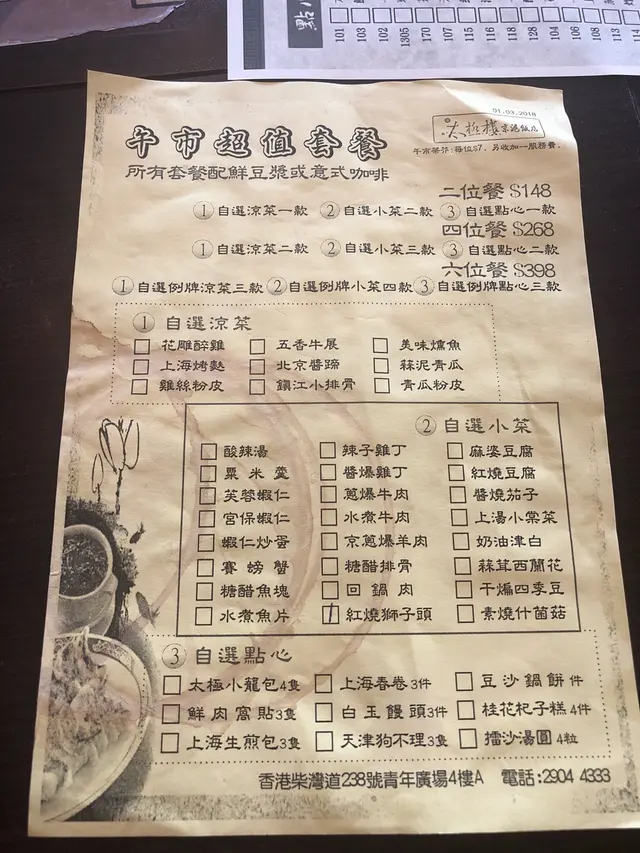 點
101
103
102
1305
170
107
115
110
118
128
104
106
108
113
01.03.2018
太極樓 京滬飯店
午市茶芥:每位$7, 另收加一服務費.
午市超值套餐
所有套餐配鮮豆漿或意式咖啡
二位餐 $148
① 自選涼菜一款 ② 自選小菜二款 ③ 自選點心一款
四位餐 $268
① 自選涼菜二款 ② 自選小菜三款 ③ 自選點心二款
六位餐 $398
① 自選例牌涼菜三款 ② 自選例牌小菜四款 ③ 自選例牌點心三款
① 自選涼菜
花雕醉雞 五香牛展 美味燻魚
上海烤麩 北京醬蹄 蒜泥青瓜
雞絲粉皮 鎮江小排骨 青瓜粉皮
② 自選小菜
酸辣湯 辣子雞丁 麻婆豆腐
粟米羹 醬爆雞丁 紅燒豆腐
芙蓉蝦仁 蔥爆牛肉 醬燒茄子
宮保蝦仁 水煮牛肉 上湯小棠菜
蝦仁炒蛋 京蔥爆羊肉 奶油津白
賽螃蟹 糖醋排骨 蒜茸西蘭花
糖醋魚塊 回鍋肉 干煸四季豆
水煮魚片 紅燒獅子頭 素燒什菌菇
③ 自選點心
太極小籠包4隻 上海春卷3件 豆沙鍋餅 件
鮮肉窩貼3隻 白玉饅頭3件 桂花杞子糕 4件
上海生煎包3隻 天津狗不理3隻 擂沙湯圓 4粒
香港柴灣道238號青年廣場4樓A 電話:2904 4333